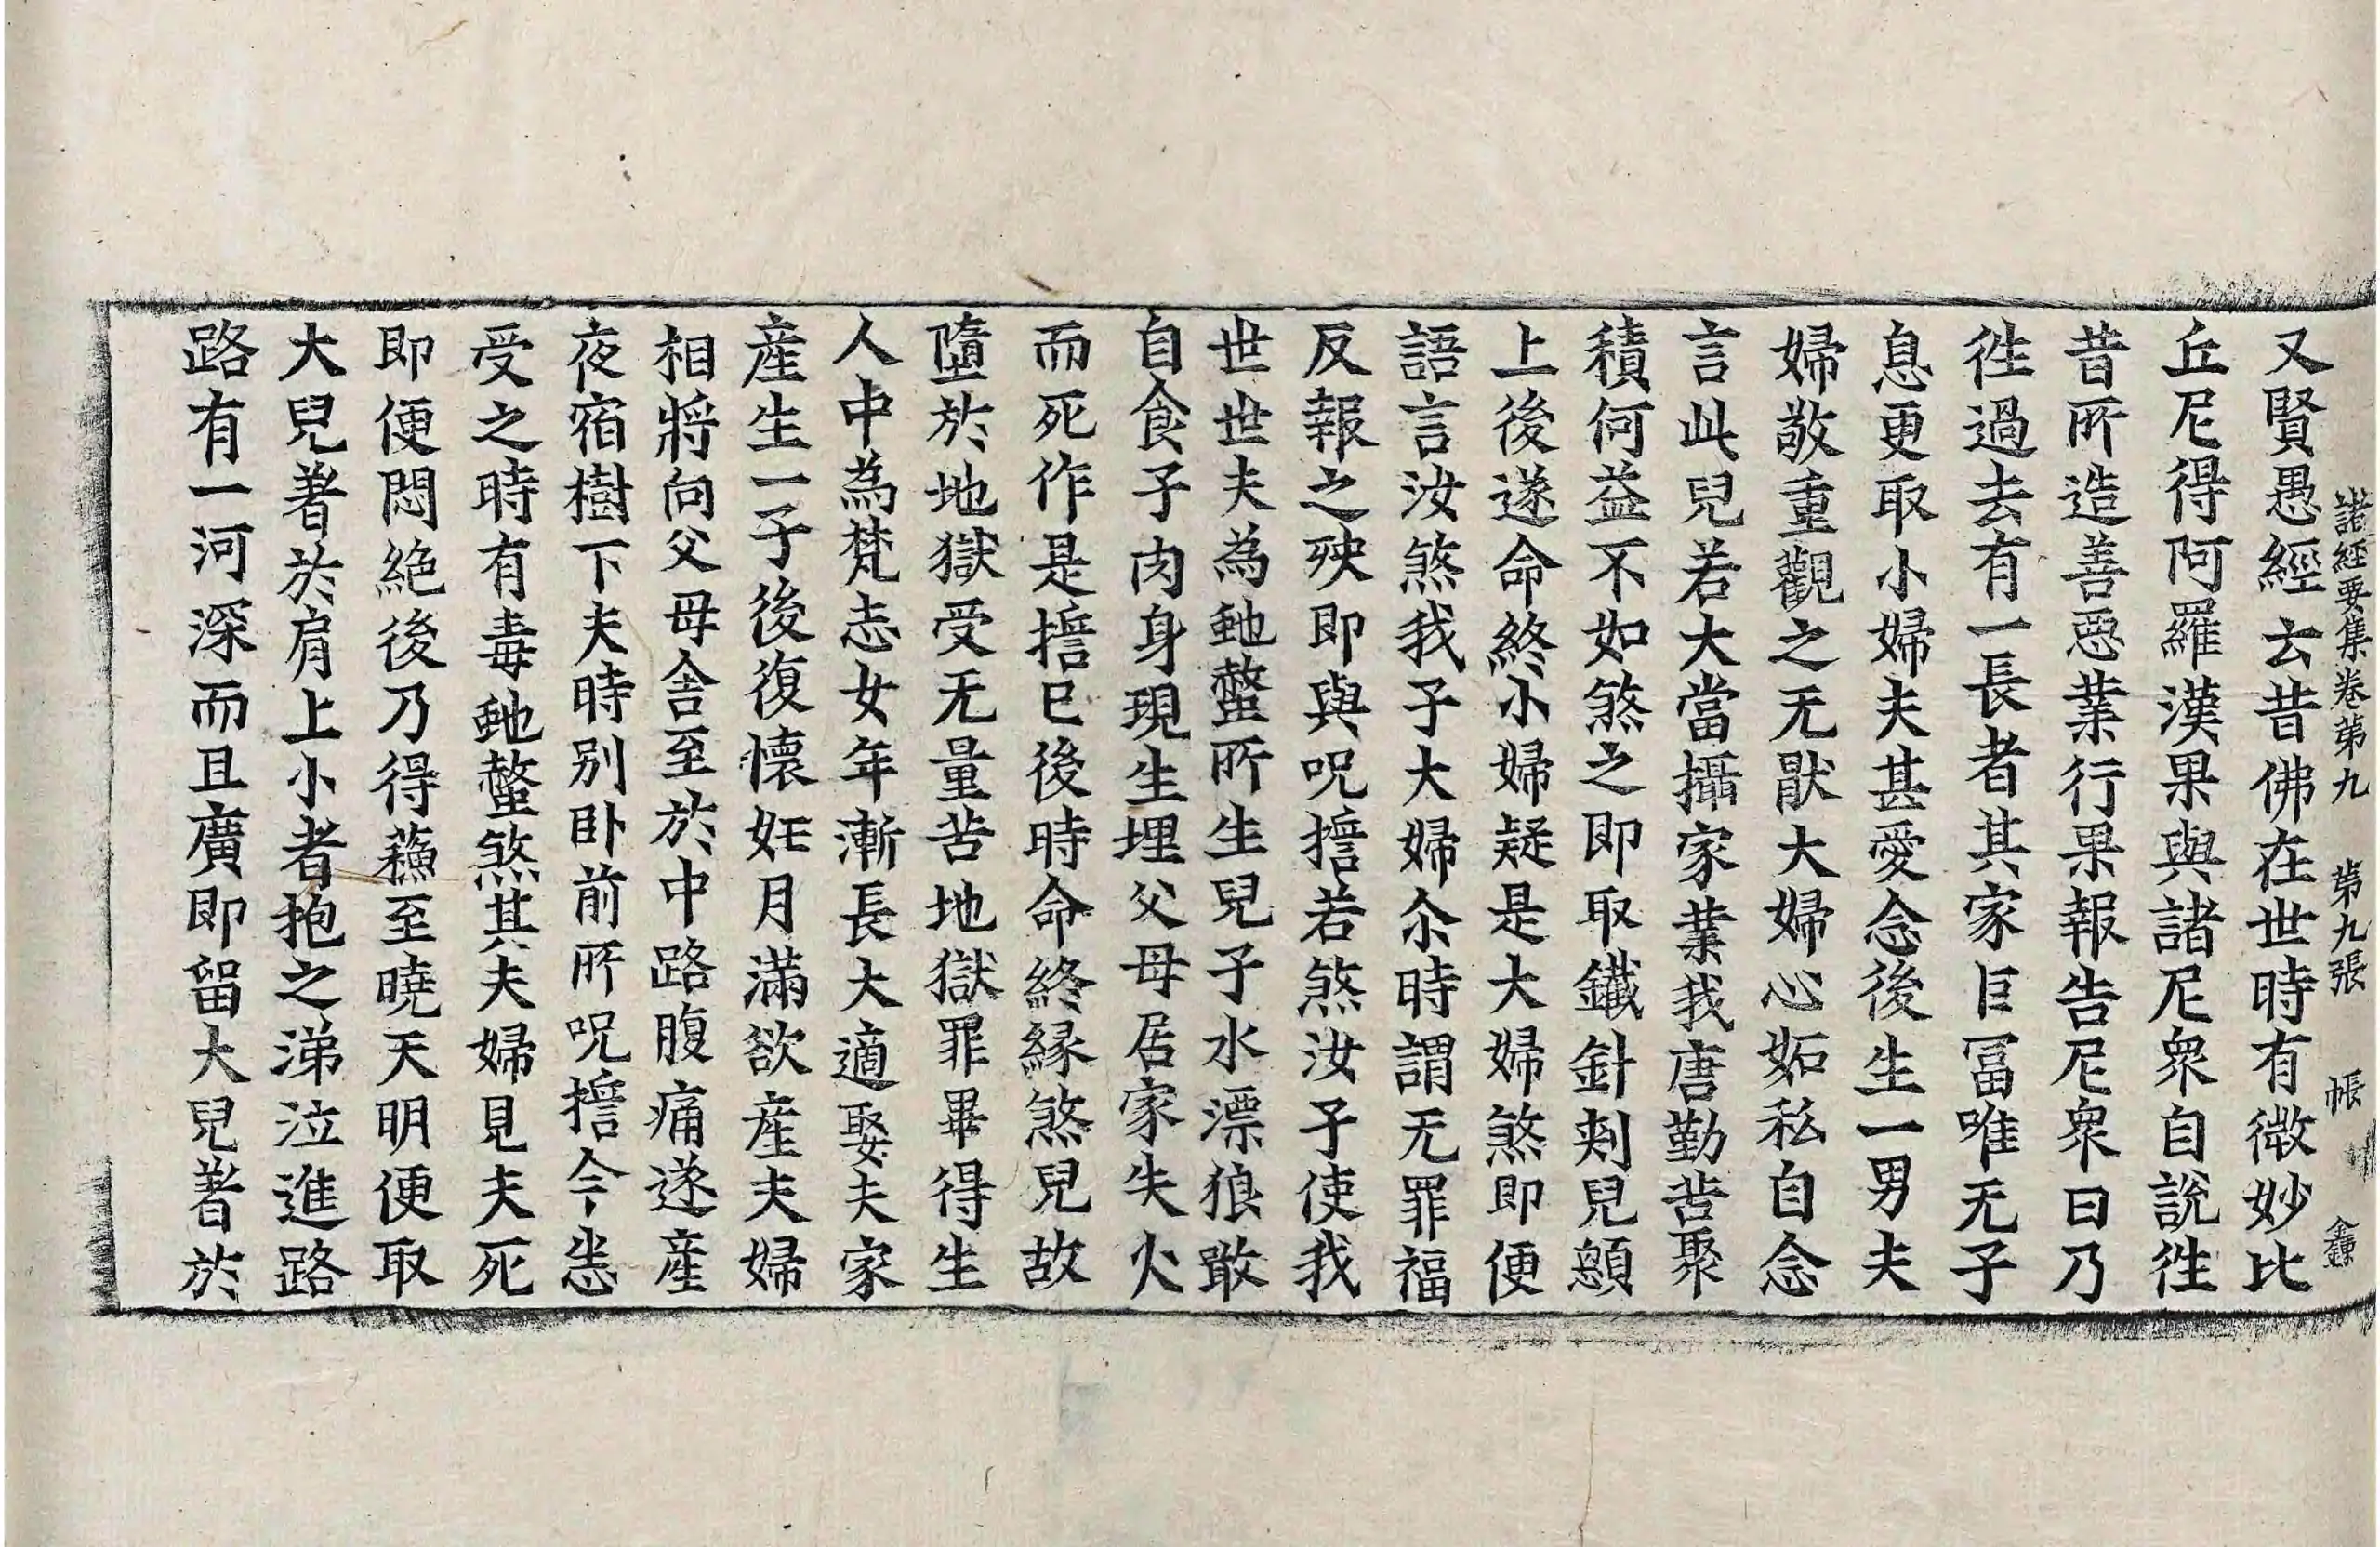 諸經要集卷第九　第九張　帳　金鍾
又賢愚經云昔佛在世時有微妙比
丘尼得阿羅漢果與諸尼衆自說徃
昔所造善惡業行果報告尼衆曰乃
徃過去有一長者其家巨冨唯无子
息更取小婦夫甚愛念後生一男夫
婦敬重觀之无猒大婦心妬私自念
言此兒若大當攝家業我唐勤苦聚
積何益不如煞之即取鐵針刾兒顖
上後遂命終小婦疑是大婦煞即便
語言汝煞我子大婦尒時謂无罪福
反報之殃即與呪擔若煞汝子使我
世世夫為虵螫所生兒子水漂狼敢
自食子肉身現生埋父母居家失火
而死作是擔巳後時命終緣煞兒故
墮於地獄受无量苦地獄罪畢得生
人中為梵志女年漸長大適娶夫家
產生一子後復懷妊月滿欲產夫婦
相將向父母舍至於中路腹痛遂產
夜宿樹下夫時别卧前所呪擔今悉
受之時有毒虵螫煞其夫婦見夫死
即便悶絕後乃得蘓至曉天明便取
大兒著於肩上小者抱之涕泣進路
路有一河深而且廣即留大兒著於